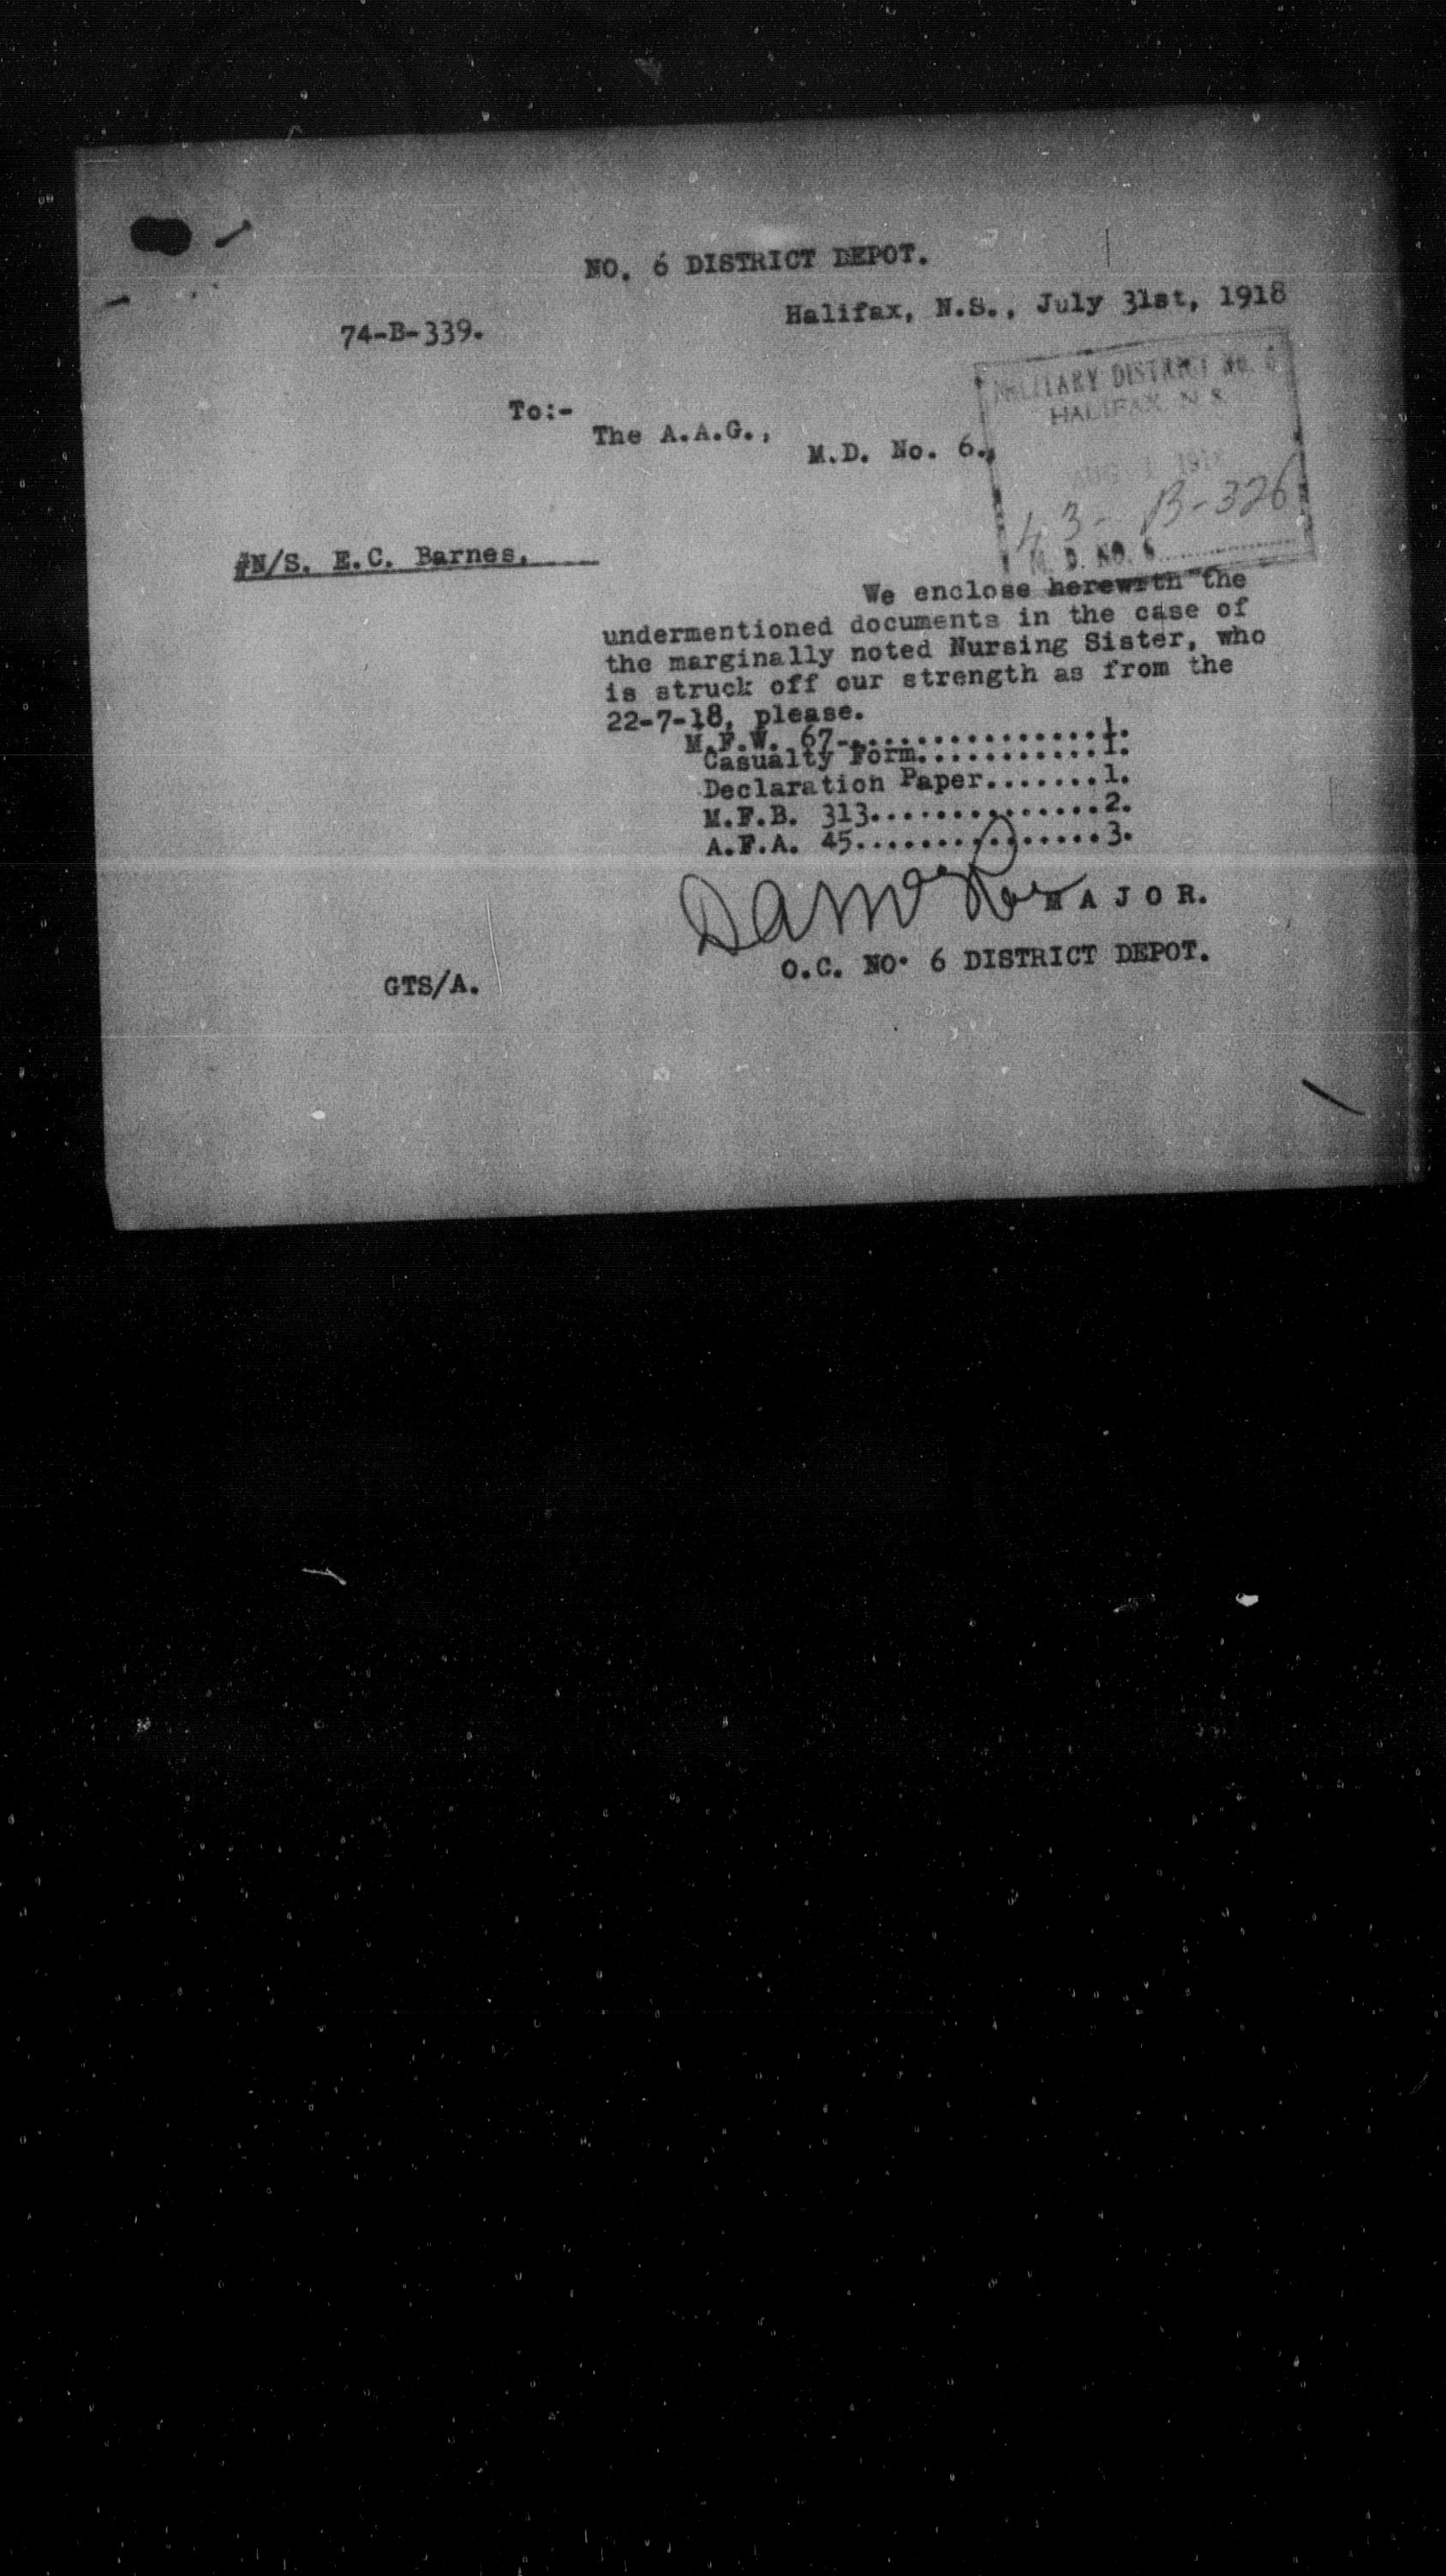 NO. 6 DISTRICT DEPOT.
Halifax, N.S., July 31st, 1918
74-B-339.
MILITARY DISTRICT No. 6
HALIFAX N.S.
To:-
The A.A.G.,
M.D. No. 6.,
AUG 1 1918
43-B-326
M. D. NO. 6
#N/S. E.C. Barnes.
We enclose herewith the
undermentioned documents in the case of
the marginally noted Nursing Sister, who
is struck off our strength as from the
22-7-18, please.
M.F.W. 67-................1.
Casualty Form............1.
Declaration Paper.......1.
M.F.B. 313..............2.
A.F.A. 45...............3.
MAJOR.
O.C. NO. 6 DISTRICT DEPOT.
GTS/A.